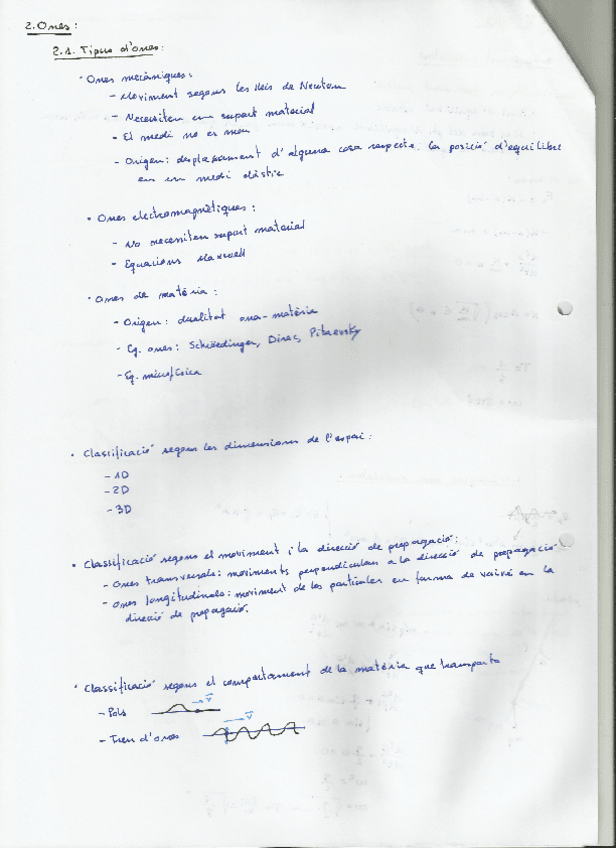 2. Ones:
2.1. Tipus d'ones:
· Ones mecàniques:
- Moviment segons les lleis de Newton
- Necessiten un suport material
- El medi no es mou
- Origen: desplaçament d'alguna cosa respecte la posició d'equilibri
en un medi elàstic
· Ones electromagnètiques:
- No necessiten suport material
- Equacions Maxwell
· Ones de matèria:
- Origen: dualitat ona-matèria
- Eq. ones: Schrödinger, Dirac, Pitaevsky
- Eq. microfísica
· Classificació segons les dimensions de l'espai:
- 1D
- 2D
- 3D
· Classificació segons el moviment i la direcció de propagació:
- Ones transversals: moviments perpendiculars a la direcció de propagació
- Ones longitudinals: moviment de les partícules en forma de vaivé en la
direcció de propagació.
· Classificació segons el comportament de la matèria que transporta
- Pols v
- Tren d'ones v